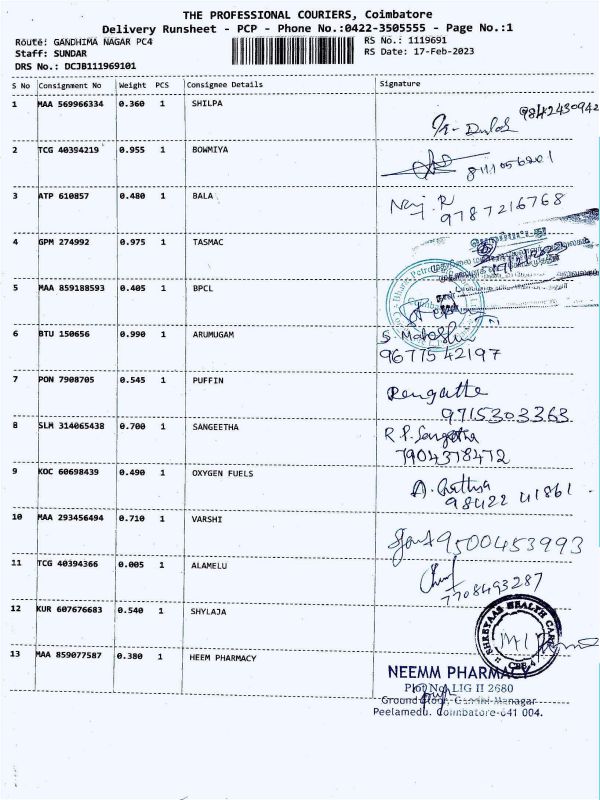 THE PROFESSIONAL COURIERS, Coimbatore
Delivery Runsheet - PCP - Phone No.:0422-3505555 - Page No.:1
Route: GANDHIMA NAGAR PC4 RS No.: 1119691
Staff: SUNDAR RS Date: 17-Feb-2023
DRS No.: DCJB111969101
S No Consignment No Weight PCS Consignee Details Signature
1 MAA 569966334 0.360 1 SHILPA
9842430942
2 TCG 40394219 0.955 1 BOWMIYA
8111056201
3 ATP 610857 0.480 1 BALA
9787216768
4 GPM 274992 0.975 1 TASMAC
5 MAA 859188593 0.405 1 BPCL
6 BTU 150656 0.990 1 ARUMUGAM
9677542197
7 PON 7908705 0.545 1 PUFFIN
9715303363
8 SLM 314065438 0.700 1 SANGEETHA
R.P. Sangeetha
7904378472
9 KOC 60698439 0.490 1 OXYGEN FUELS
98422 41861
10 MAA 293456494 0.710 1 VARSHI
9500453993
11 TCG 40394366 0.005 1 ALAMELU
7708493287
12 KUR 607676683 0.540 1 SHYLAJA
SHREYAAS HEALTH CARE
CBE-4
13 MAA 859077587 0.380 1 HEEM PHARMACY
NEEMM PHARMACY
Plot No. LIG II 2680
Ground Floor, Gandhi Managar
Peelamedu. Coimbatore-641 004.